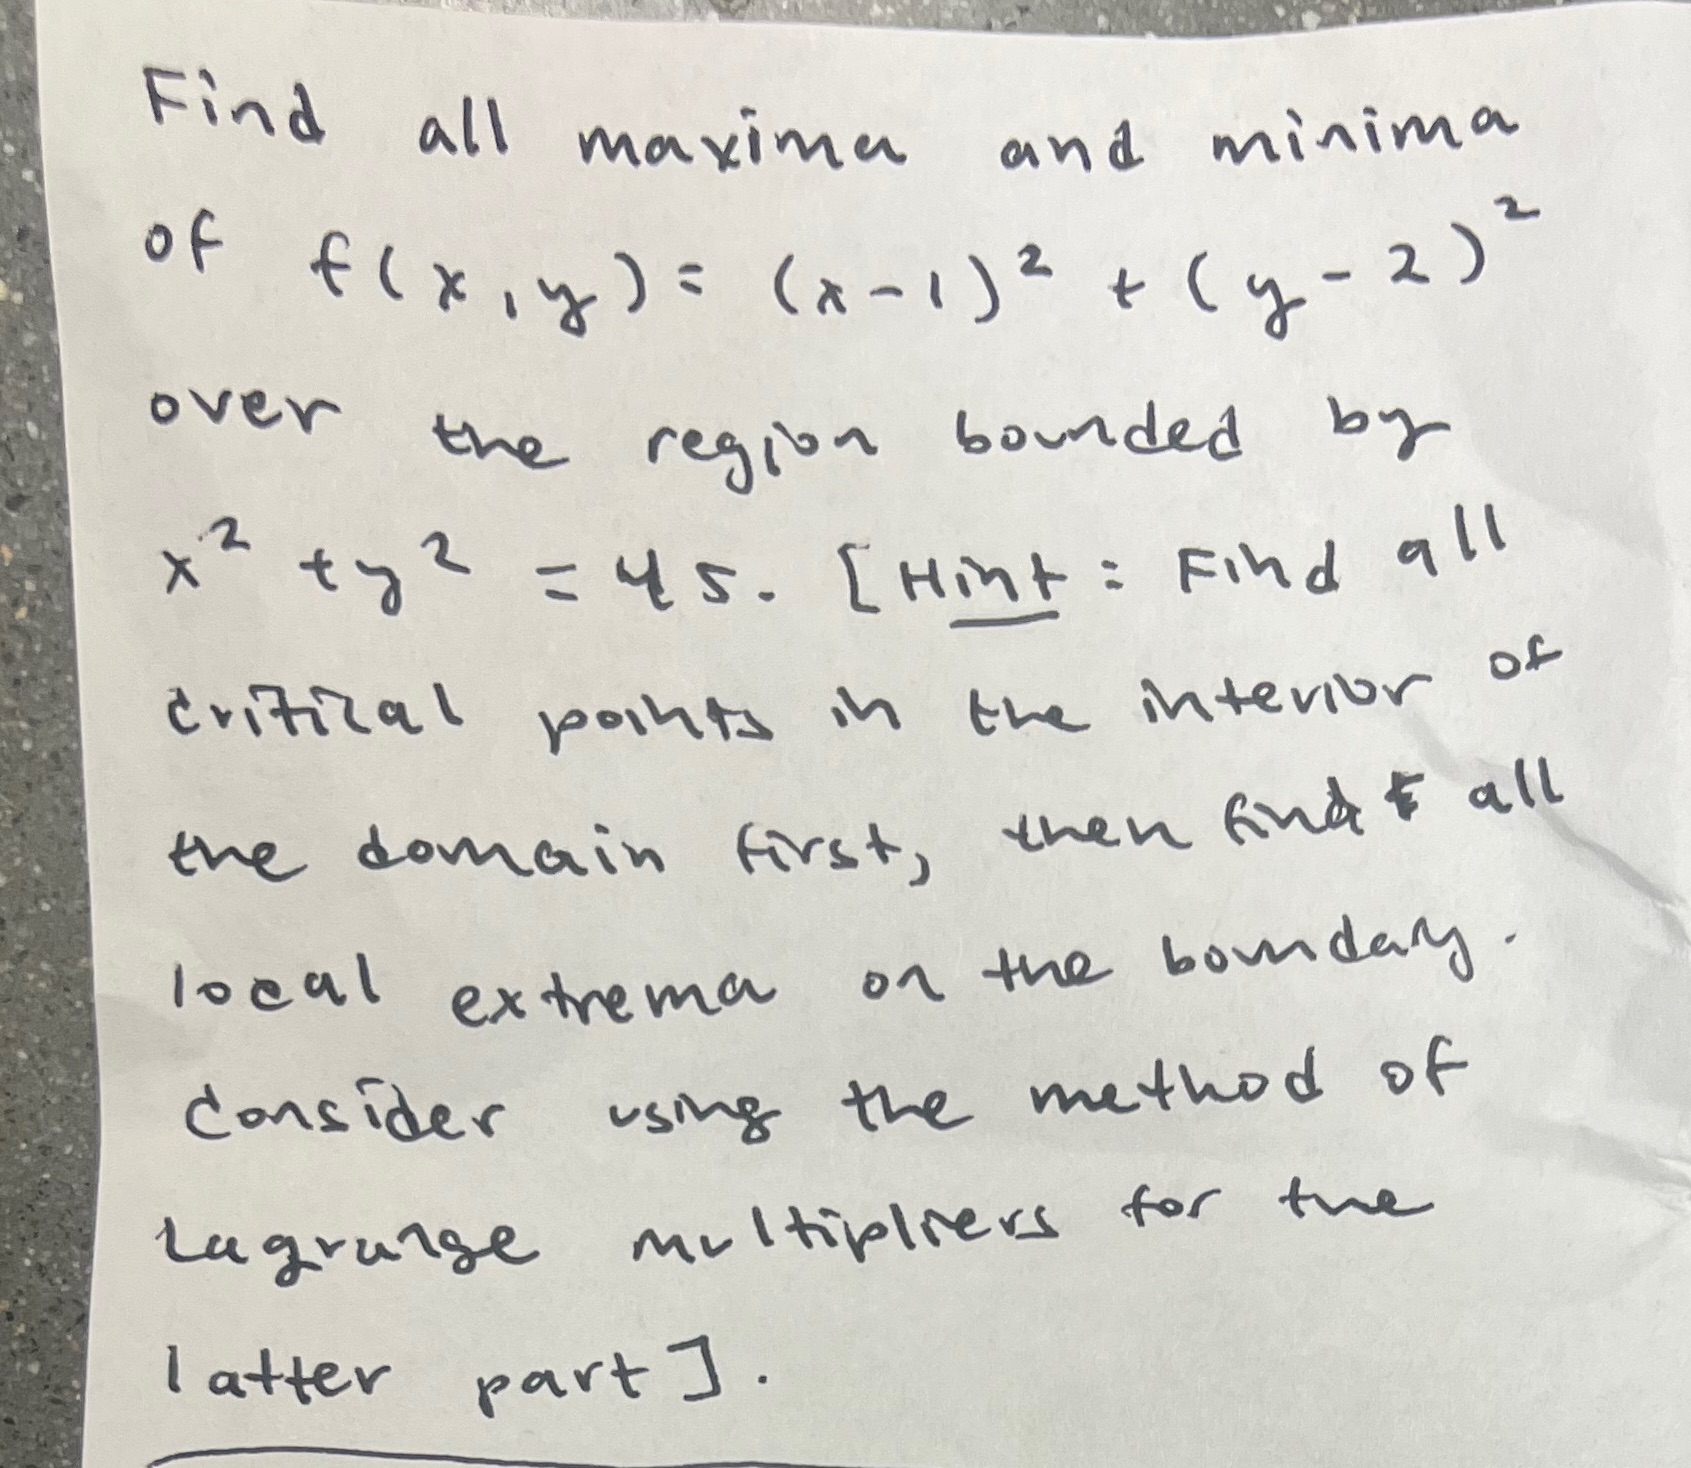 Find all maxima and minima
of f(x,y) = (x-1)² + (y-2)²
over the region bounded by
x² + y² = 45. [Hint: Find all
critical points in the interior of
the domain first, then find all
local extrema on the boundary.
Consider using the method of
Lagrange multipliers for the
latter part].